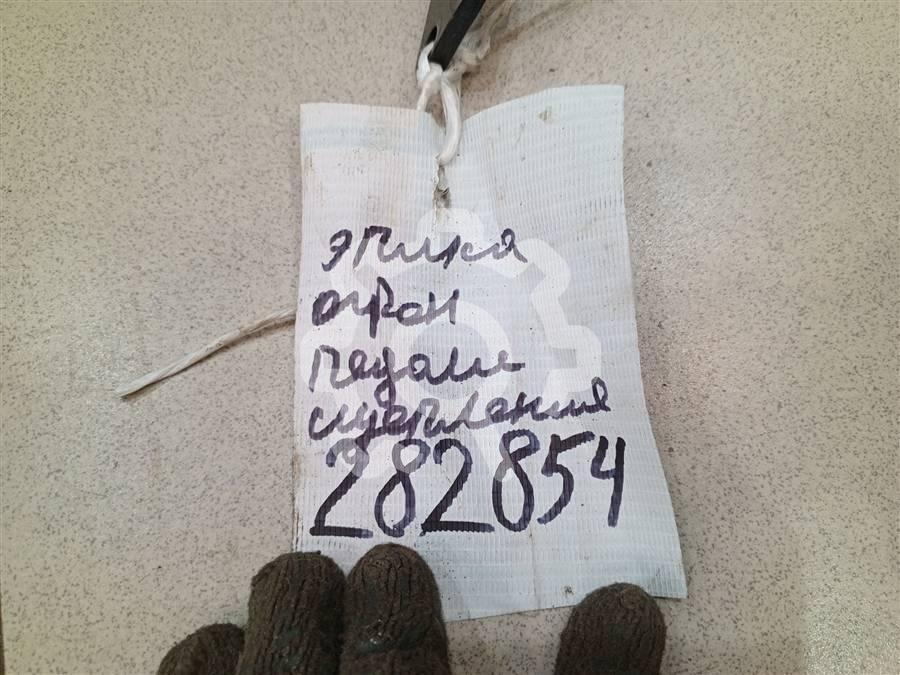 эпика
огран
педали
сцепления
282854